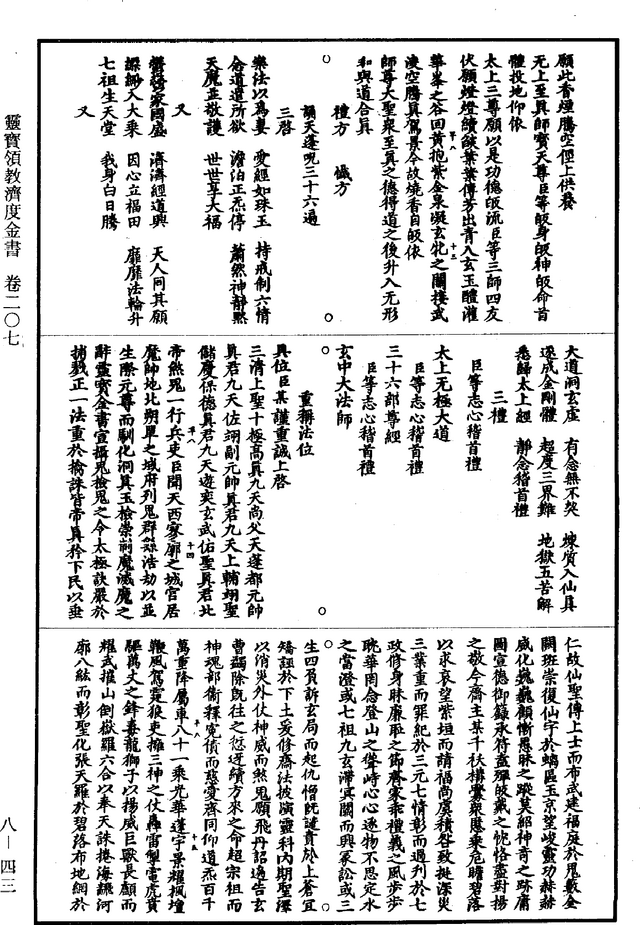 靈寶領教濟度金書　卷二〇七
八—四三
願此香煙騰空徑上供養
无上至真師寶天尊臣等皈身皈神皈命首
體投地仰依
太上三尊願以是功德皈流臣等三師四友
伏願燈燈續燄葉葉傳芳出青入玄玉醴灌
華峯之谷回黃抱紫金泉凝玄牝之關接武
凌空騰真駕景今故燒香自皈依
師尊大聖衆至真之德得道之後升入无形
和與道合真
禮方　懺方
誦天蓬呪三十六遍
三啓
樂法以爲妻　愛經如珠玉　持戒制六情
念道遣所欲　澹泊正炁停　蕭然神靜默
天魔並敬護　世世享大福
又
鬱鬱家國盛　濟濟經道興　天人同其願
縹緲入大乘　因心立福田　靡靡法輪升
七祖生天堂　我身白日騰
又
大道洞玄虛　有念無不契　煉質入仙真
遂成金剛體　超度三界難　地獄五苦解
悉歸太上經　靜念稽首禮
三禮
臣等志心稽首禮
太上无極大道
臣等志心稽首禮
三十六部尊經
臣等志心稽首禮
玄中大法師
重稱法位
具位臣某謹重誠上啓
三清上聖十極高真九天尚父天蓬都元帥
真君九天佐翊副元帥真君九天上輔翊聖
儲慶保德真君九天遊奕玄武佑聖真君北
帝煞鬼一行兵吏臣聞天西寥廓之城宮居
魔師地北朔單之域府列鬼群緜浩劫以並
生際元尊而馴化洞真玉檢崇制魔滅魔之
辭靈寶金書宣攝鬼檢鬼之令太極訣嚴於
捕戮正一法重於擒誅皆帝真矜下民以垂
仁故仙聖傳上士而布武建福庭於鬼數金
闕班崇復仙宇於蝸區玉京望峻靈功赫赫
威化巍巍顧慚愚昧之蹤莫紹神奇之跡庸
圖宣德御籙承符蓋殫皈戴之忱恪盡對揚
之敬今齋主某千袄構釁衆慝乘危瞻碧落
以求哀望紫垣而請福尚虞積咎致挺深災
三業重而罪紀於三元七情彰而過刋於七
政修身昧廉恥之節齋家乖禮義之風步步
耽華罔念登山之聳峙心心逐物不思定水
之當澄或七祖九玄滯冥關而興冢訟或三
生四貟訴玄局而起仇憎旣譴責於上蒼宜
矯誣於下土爰修齋法披演靈科內期聖澤
以消災外仗神威而煞鬼願飛丹詔遏告玄
曹蠲除旣往之愆迓續方來之命超宗祖而
神魂部衛釋寃債而慈愛齊同仰道炁百千
萬重降屬車八十一乘光華蓬宇景耀楓壇
鞭風駕霆狼吏擁三神之仗轟雷掣電虎賁
驅萬丈之鋒毒龍獅子以揚威巨獸長顱而
耀武摧山倒嶽羅六合以奉天誅捲海飜河
廓八紘而彰聖化張天羅於碧落布地網於